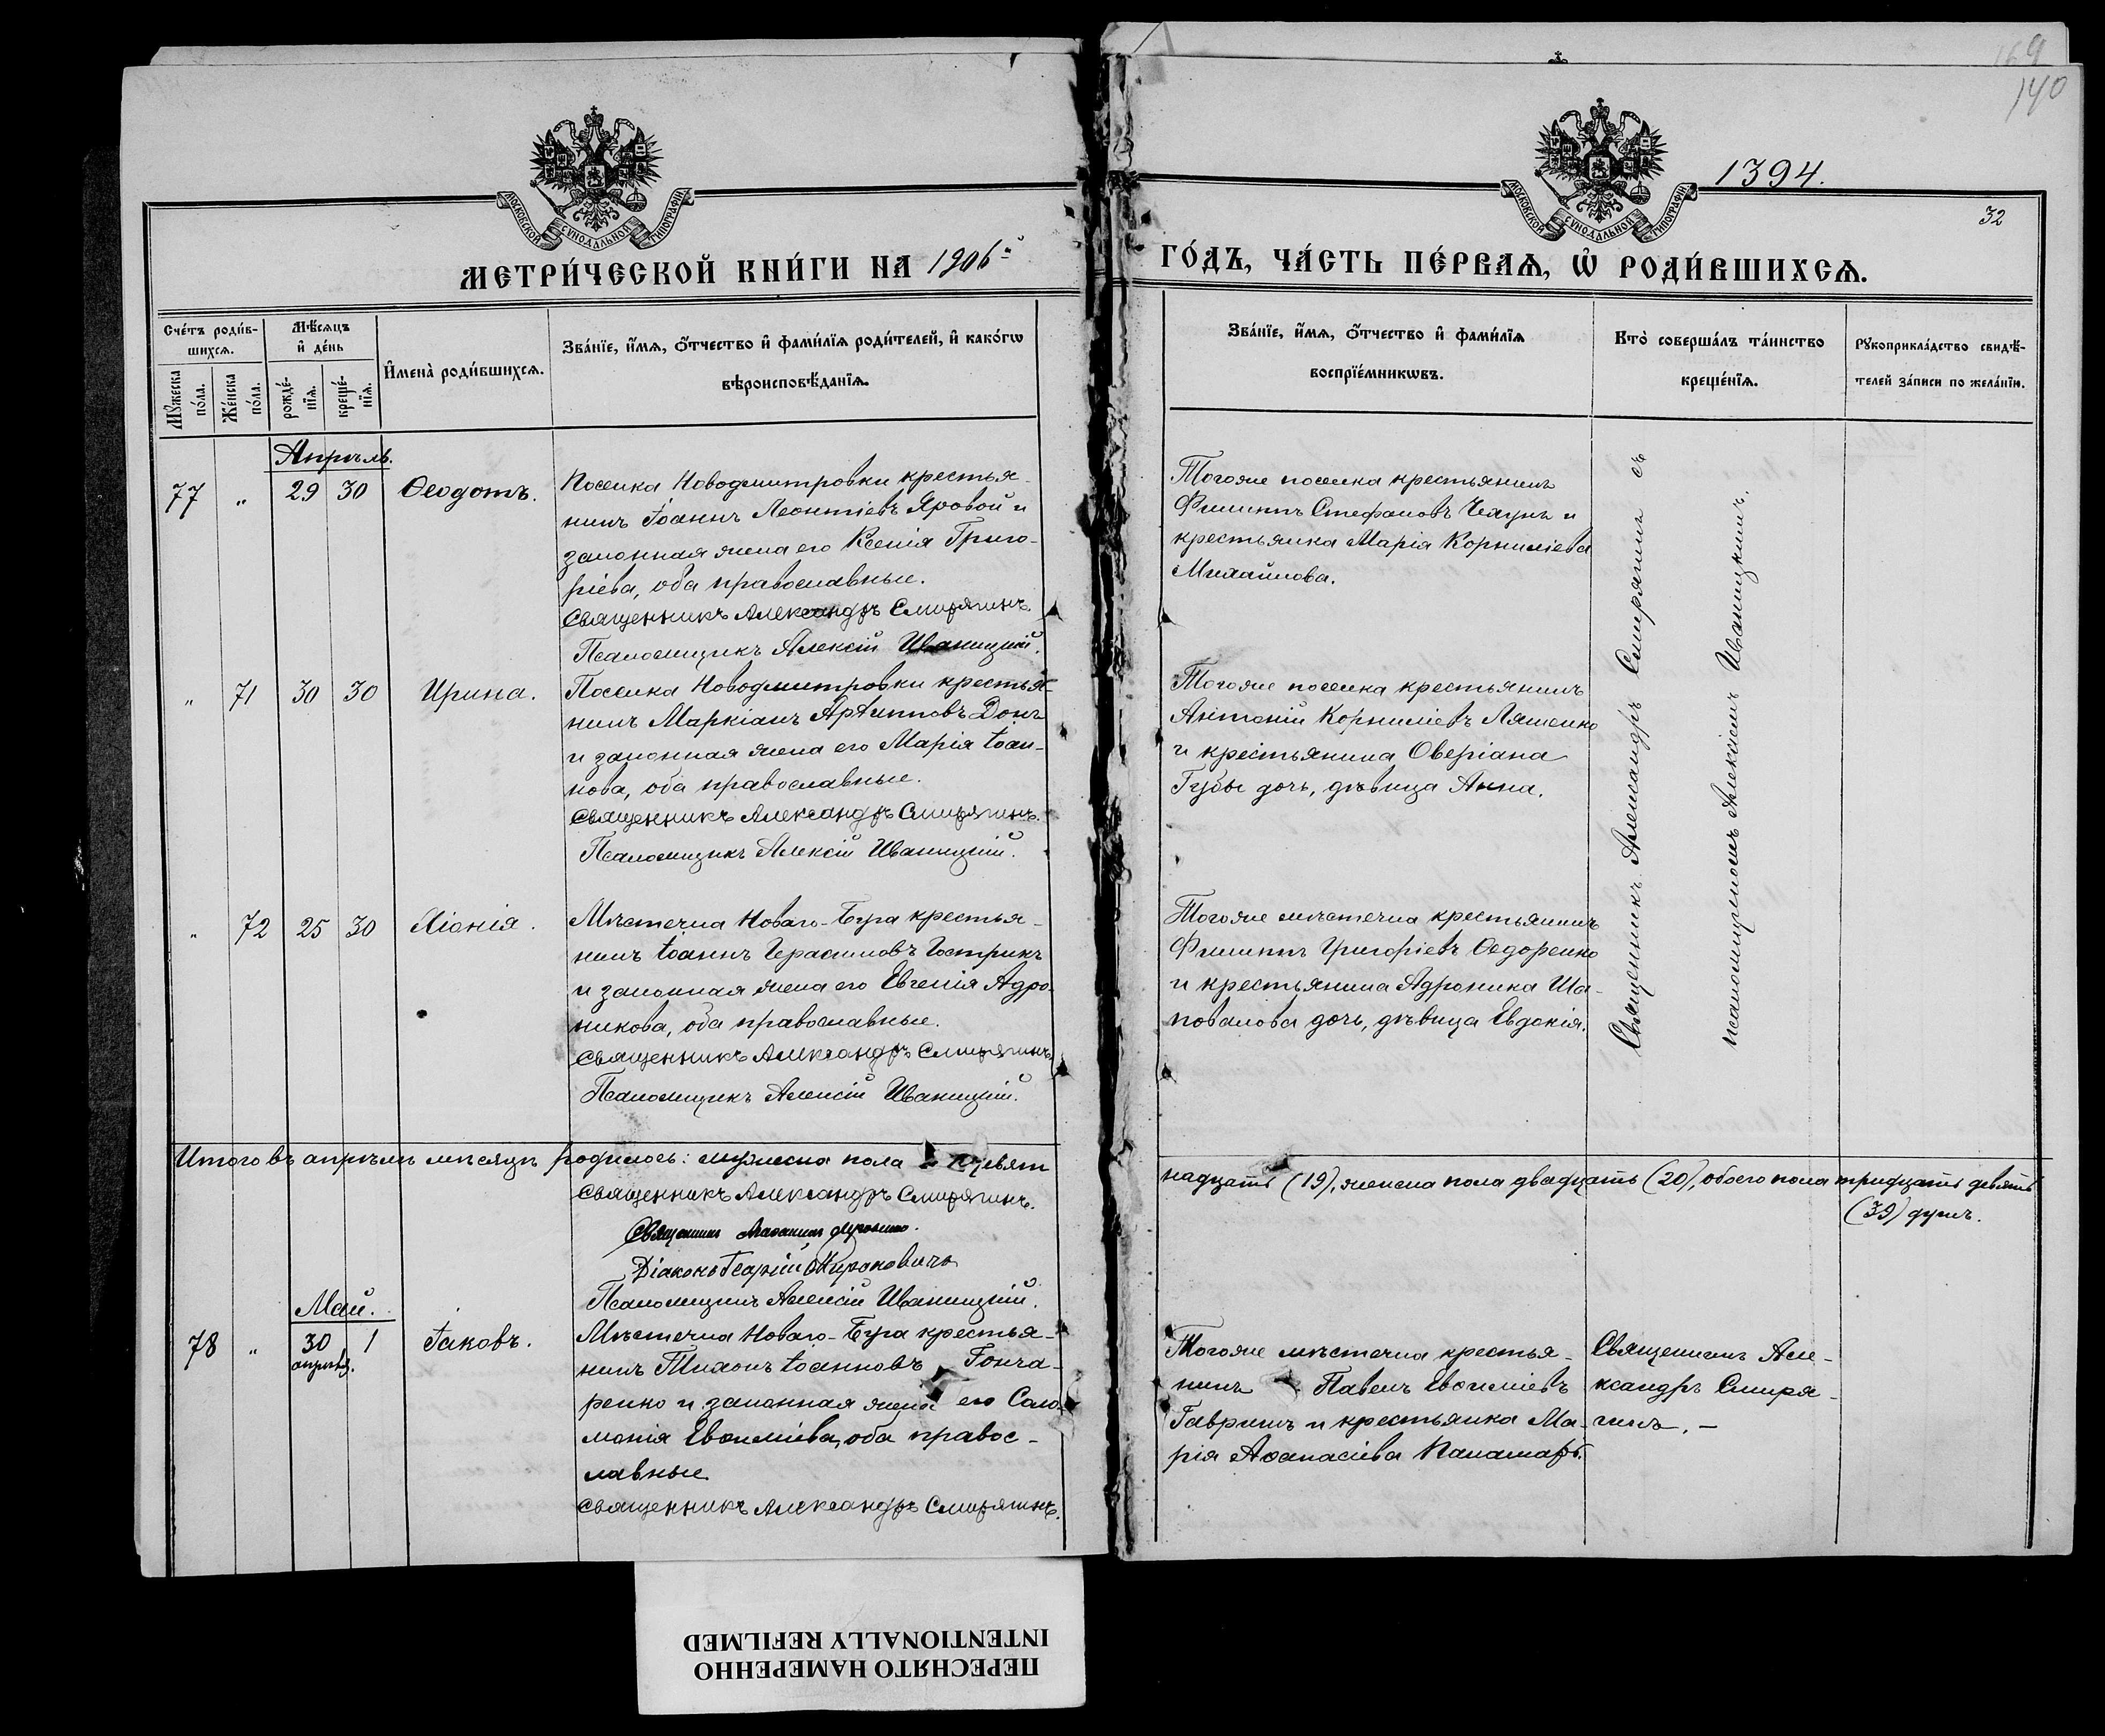 169
140
1394.
32
МОСКОВСКОЙ СУНОДАЛЬНОЙ ТИПОГРАФІИ
МОСКОВСКОЙ СУНОДАЛЬНОЙ ТИПОГРАФІИ
МЕТРИ́ЧЕСКОЙ КНИ́ГИ НА 1906й
ГО́ДЪ, ЧА́СТЬ ПЕ́РВАѦ, Ѡ҆ РОДИ́ВШИХСѦ.
Сче́тъ роди́в-
шихсѧ.
Мꙋ́жеска по́ла.
Же́нска по́ла.
Мѣ́сѧцъ
и҆ де́нь
рожде́-
нїѧ.
креще́-
нїѧ.
И҆мена̀ роди́вшихсѧ.
Зва́нїе, и҆́мѧ, ѻ҆́тчество и҆ фами́лїѧ роди́телей, и҆ како́гѡ
вѣроисповѣ́данїѧ.
Зва́нїе, и҆́мѧ, ѻ҆́тчество и҆ фами́лїѧ
воспрїе́мникѡвъ.
Кто̀ соверша́лъ та́инство
креще́нїѧ.
Рꙋкоприкла́дство свидѣ́-
телей за́писи по жела́нїю.
Апрѣль.
77 " 29 30 Ѳеодотъ.
Поселка Новодмитровки крестья-
нинъ Іоаннъ Леонтіевъ Яровой и
законная жена его Ксенія Григо-
ріева, оба православные.
Священникъ Александръ Смирягинъ.
Псаломщикъ Алексій Иваницкій.
Тогоже поселка крестьянинъ
Филиппъ Стефановъ Чекунъ и
крестьянка Марія Корниліева
Михайлова.
Священникъ Александръ Смирягинъ съ
псаломщикомъ Алексіемъ Иваницкимъ.
" 71 30 30 Ирина.
Поселка Новодмитровки крестья-
нинъ Маркіанъ Архипповъ Донъ
и законная жена его Марія Іоан-
нова, оба православные.
Священникъ Александръ Смирягинъ.
Псаломщикъ Алексій Иваницкій.
Тогоже поселка крестьянинъ
Антоній Корниліевъ Ляшенко
и крестьянина Оверіана
Губы дочь, дѣвица Анна.
" 72 25 30 Хіонія.
Мѣстечка Новаго-Буга крестья-
нинъ Іоаннъ Герасимовъ Гострикъ
и законная жена его Евгенія Адро-
никова, оба православные.
Священникъ Александръ Смирягинъ.
Псаломщикъ Алексій Иваницкій.
Тогоже мѣстечка крестьянинъ
Филиппъ Григоріевъ Ѳедоренко
и крестьянина Адроника Ша-
повалова дочь, дѣвица Евдокія.
Итого въ апрѣлѣ мѣсяцѣ родилось: мужеска пола девят
надцать (19), женска пола двадцать (20), обоего пола тридцать девять
(39) душъ.
Священникъ Александръ Смирягинъ.
Священникъ
Діаконъ Георгій
Псаломщикъ Алексій Иваницкій.
Май.
78 " 30 1 Іаковъ.
апрѣля.
Мѣстечка Новаго-Буга крестья-
нинъ Тихонъ Іоанновъ Гонча-
ренко и законная жена его Соло-
монія Евѳиміева, оба правос-
лавные.
Священникъ Александръ Смирягинъ.
Тогоже мѣстечка крестья-
нинъ Павелъ Евѳиміевъ
Гавришъ и крестьянка Ма-
рія Аѳанасіева Паламарь.
Священникъ Але-
ксандръ Смиря-
гинъ. –
ПЕРЕСНЯТО НАМЕРЕННО
INTENTIONALLY REFILMED